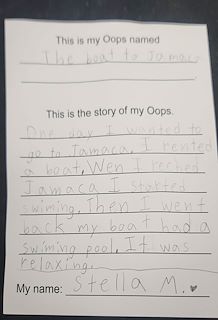 This is my Oops named
The boat to Jamac
This is the story of my Oops.
One day I wanted to
go to Jamaca. I rented
a boat. Wen I reched
Jamaca I sturted
swiming. Then I went
back my boat had a
swiming pool. It was
relaxing.
My name: Stella M.